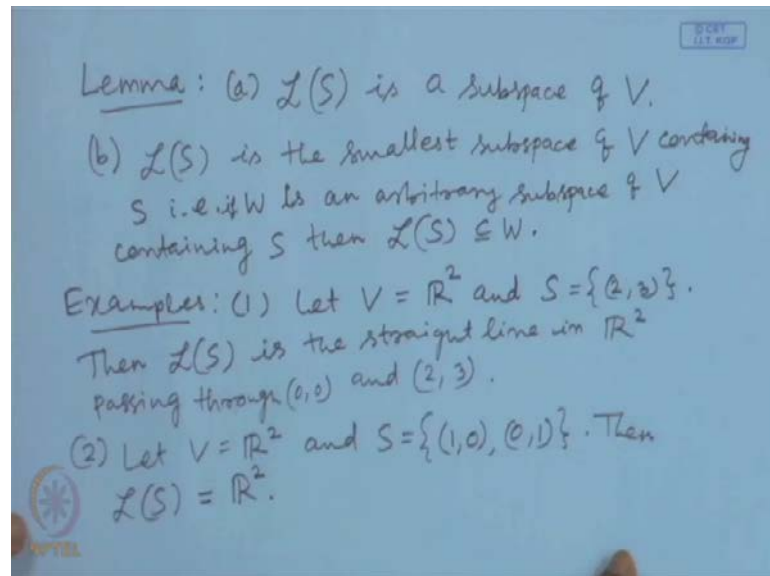 © CET
I.I.T. KGP
Lemma : (a) ℒ(S) is a subspace of V.
(b) ℒ(S) is the smallest subspace of V containing
S i.e. if W is an arbitrary subspace of V
containing S then ℒ(S) ⊆ W.
Examples : (1) Let V = ℝ² and S = {(2, 3)}.
Then ℒ(S) is the straight line in ℝ²
passing through (0,0) and (2, 3).
(2) Let V = ℝ² and S = {(1,0), (0,1)}. Then
ℒ(S) = ℝ².
NPTEL